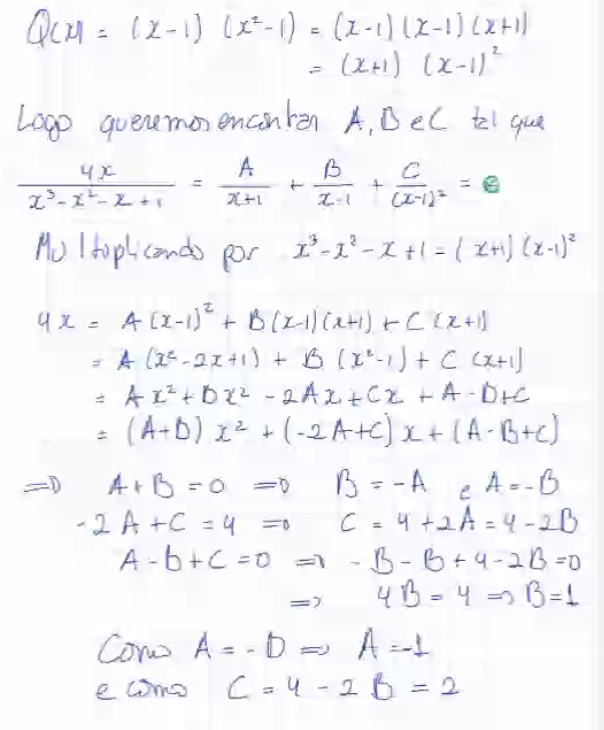 Q(x) = (x-1) (x²-1) = (x-1)(x-1)(x+1)
= (x+1) (x-1)²
Logo queremos encontrar A, B e C tal que
4x / (x³-x²-x+1) = A/(x+1) + B/(x-1) + C/(x-1)² =
Multiplicando por x³-x²-x+1 = (x+1)(x-1)²
4x = A(x-1)² + B(x-1)(x+1) + C(x+1)
= A(x²-2x+1) + B(x²-1) + C(x+1)
= Ax²+Bx² -2Ax+Cx + A-B+C
= (A+B)x² + (-2A+C)x + (A-B+C)
⇒ A+B=0 ⇒ B=-A e A=-B
-2A+C=4 ⇒ C=4+2A=4-2B
A-B+C=0 ⇒ -B-B+4-2B=0
⇒ 4B=4 ⇒ B=1
Como A=-B ⇒ A=-1
e como C=4-2B=2